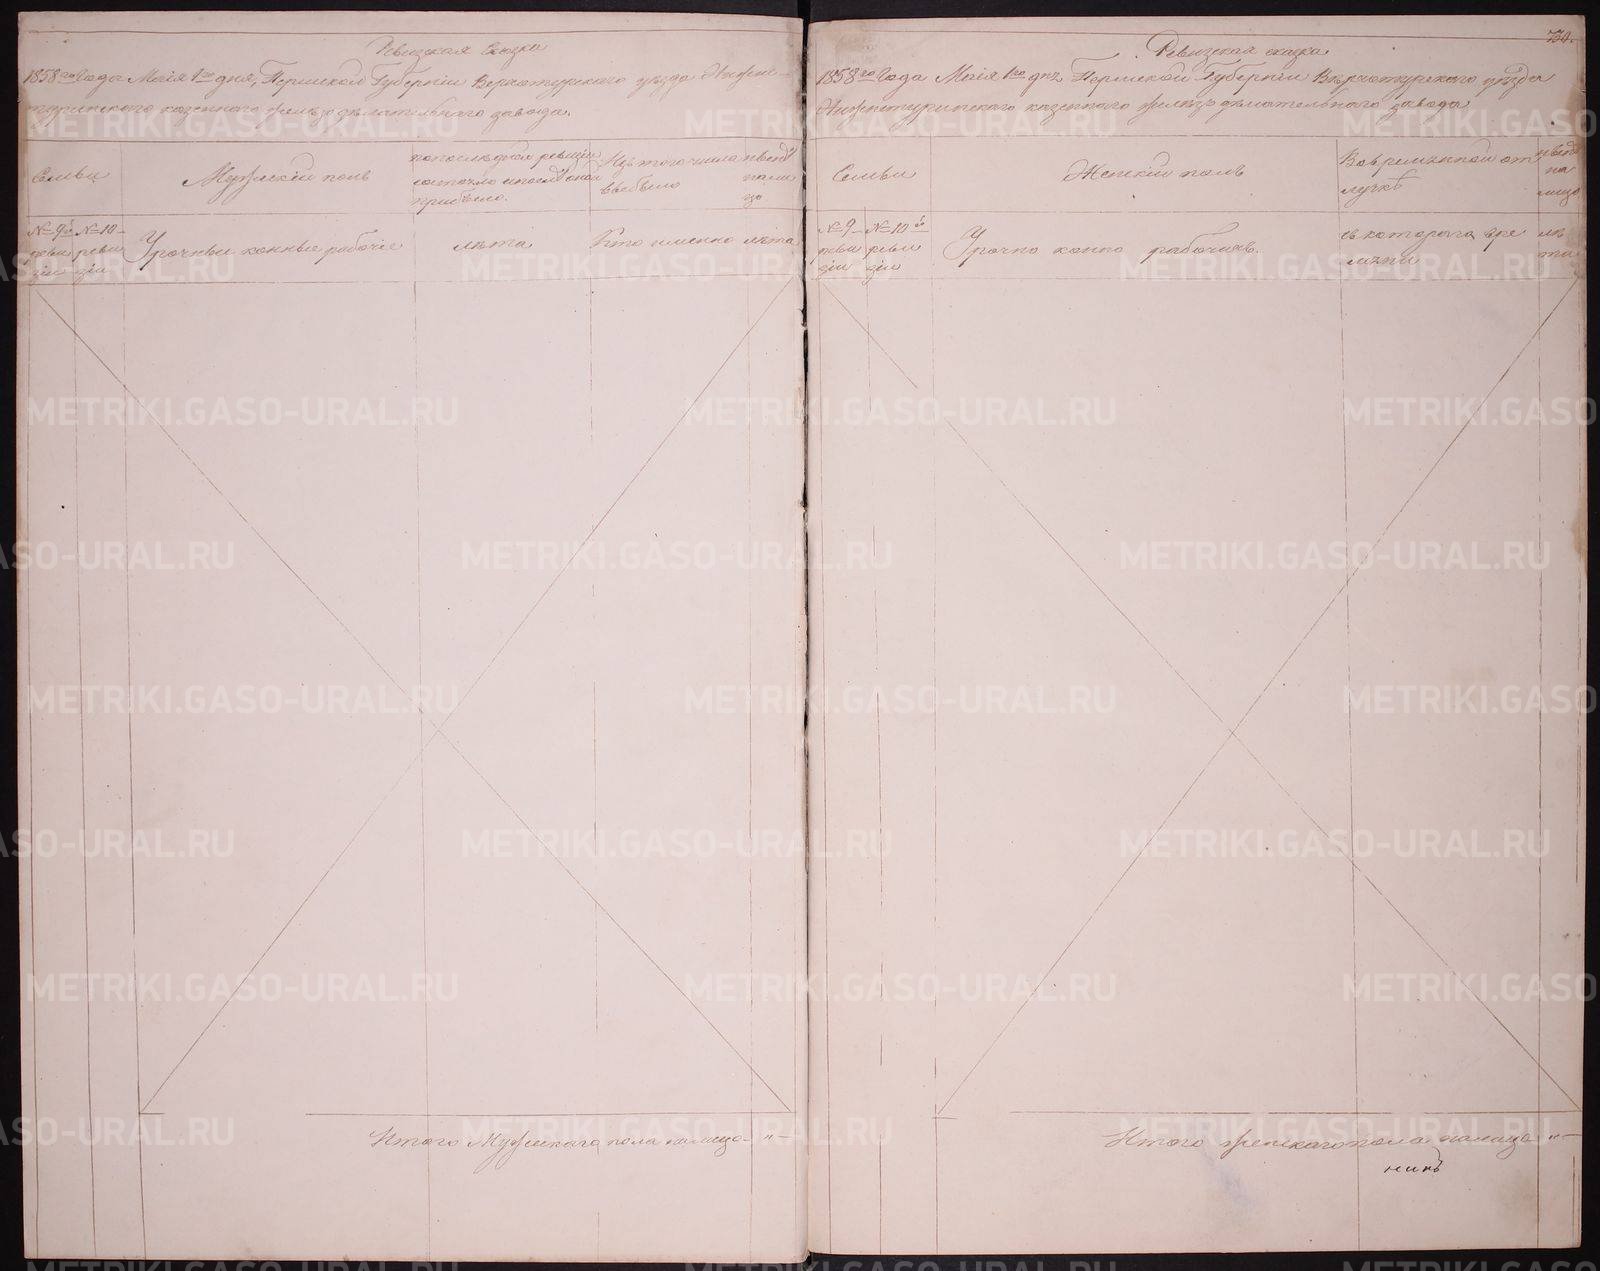 Ревизская сказка
1858 го Года Маiя 1го дня, Пермской Губернiи Верхотурского уезда Нижне-
туринского казенного железоделательного завода.
Семьи
Мужескiй полъ
по последней ревизiи
состояло и после оной
прибыло.
Изъ того числа
выбыло
ныне
на ли
цо
№ 9й
реви
зiи
№ 10
реви
зiи
Урочные конные рабочiе
лета
Кто именно
лета
Итого Мужескаго пола на лицо - " -
730.
Ревизская сказка
1858 го Года Маiя 1го дня, Пермской Губернiи Верхотурского уезда
Нижнетуринского казенного железоделательного завода
Семьи
Женскiй полъ
Во временной от
лучке
ныне
на
лицо
№ 9
реви
зiи
№ 10й
реви
зiи
Урочно конно рабочихъ
съ котораго вре
мени
ле
та
Итого женскаго пола на лицо " -
METRIKI.GASO-URAL.RU